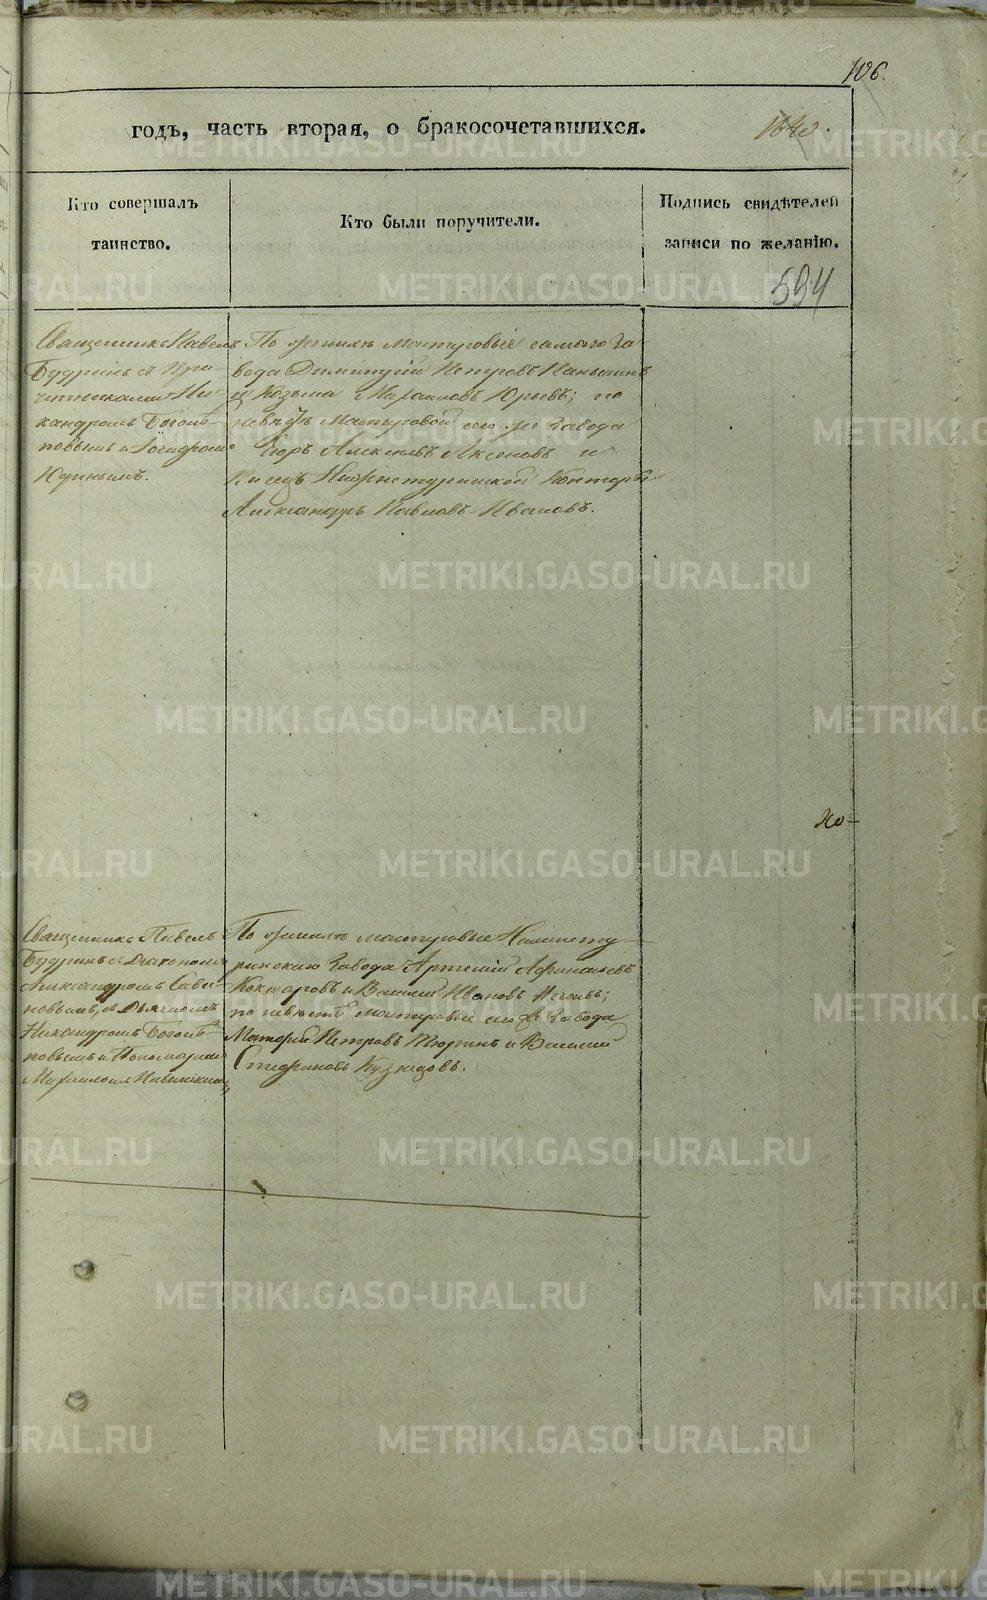 106.
годъ, часть вторая, о бракосочетавшихся.
Кто совершалъ
таинство.
Кто были поручители.
Подпись свидѣтелей
записи по желанію.
594
Священникъ Павелъ
Будринъ съ При-
четниками Ни-
кандромъ Боголѣ-
повымъ и
Юдинымъ.
По женихѣ мастеровые самаго За-
вода Димитрій Петровъ Паньшинъ
и Козьма Михайловъ Юрьевъ; по
невѣстѣ Мастеровой его же Завода
Егоръ Алексѣевъ Аксеновъ и
Писецъ Нижнетуринской Конторы
Александръ Павловъ Ивановъ.
Но-
Священникъ Павелъ
Будринъ съ Діакономъ
Александромъ
Никандромъ Боголѣ-
повымъ и Пономаремъ
Михаиломъ
По женихѣ мастеровые Нижнету-
ринскаго Завода Артемій Афанасьевъ
Кокшаровъ и Василій Ивановъ
по невѣстѣ мастеровые его же Завода
Петровъ Тюринъ и Василій
Стефановъ Кузнецовъ.
METRIKI.GASO-URAL.RU